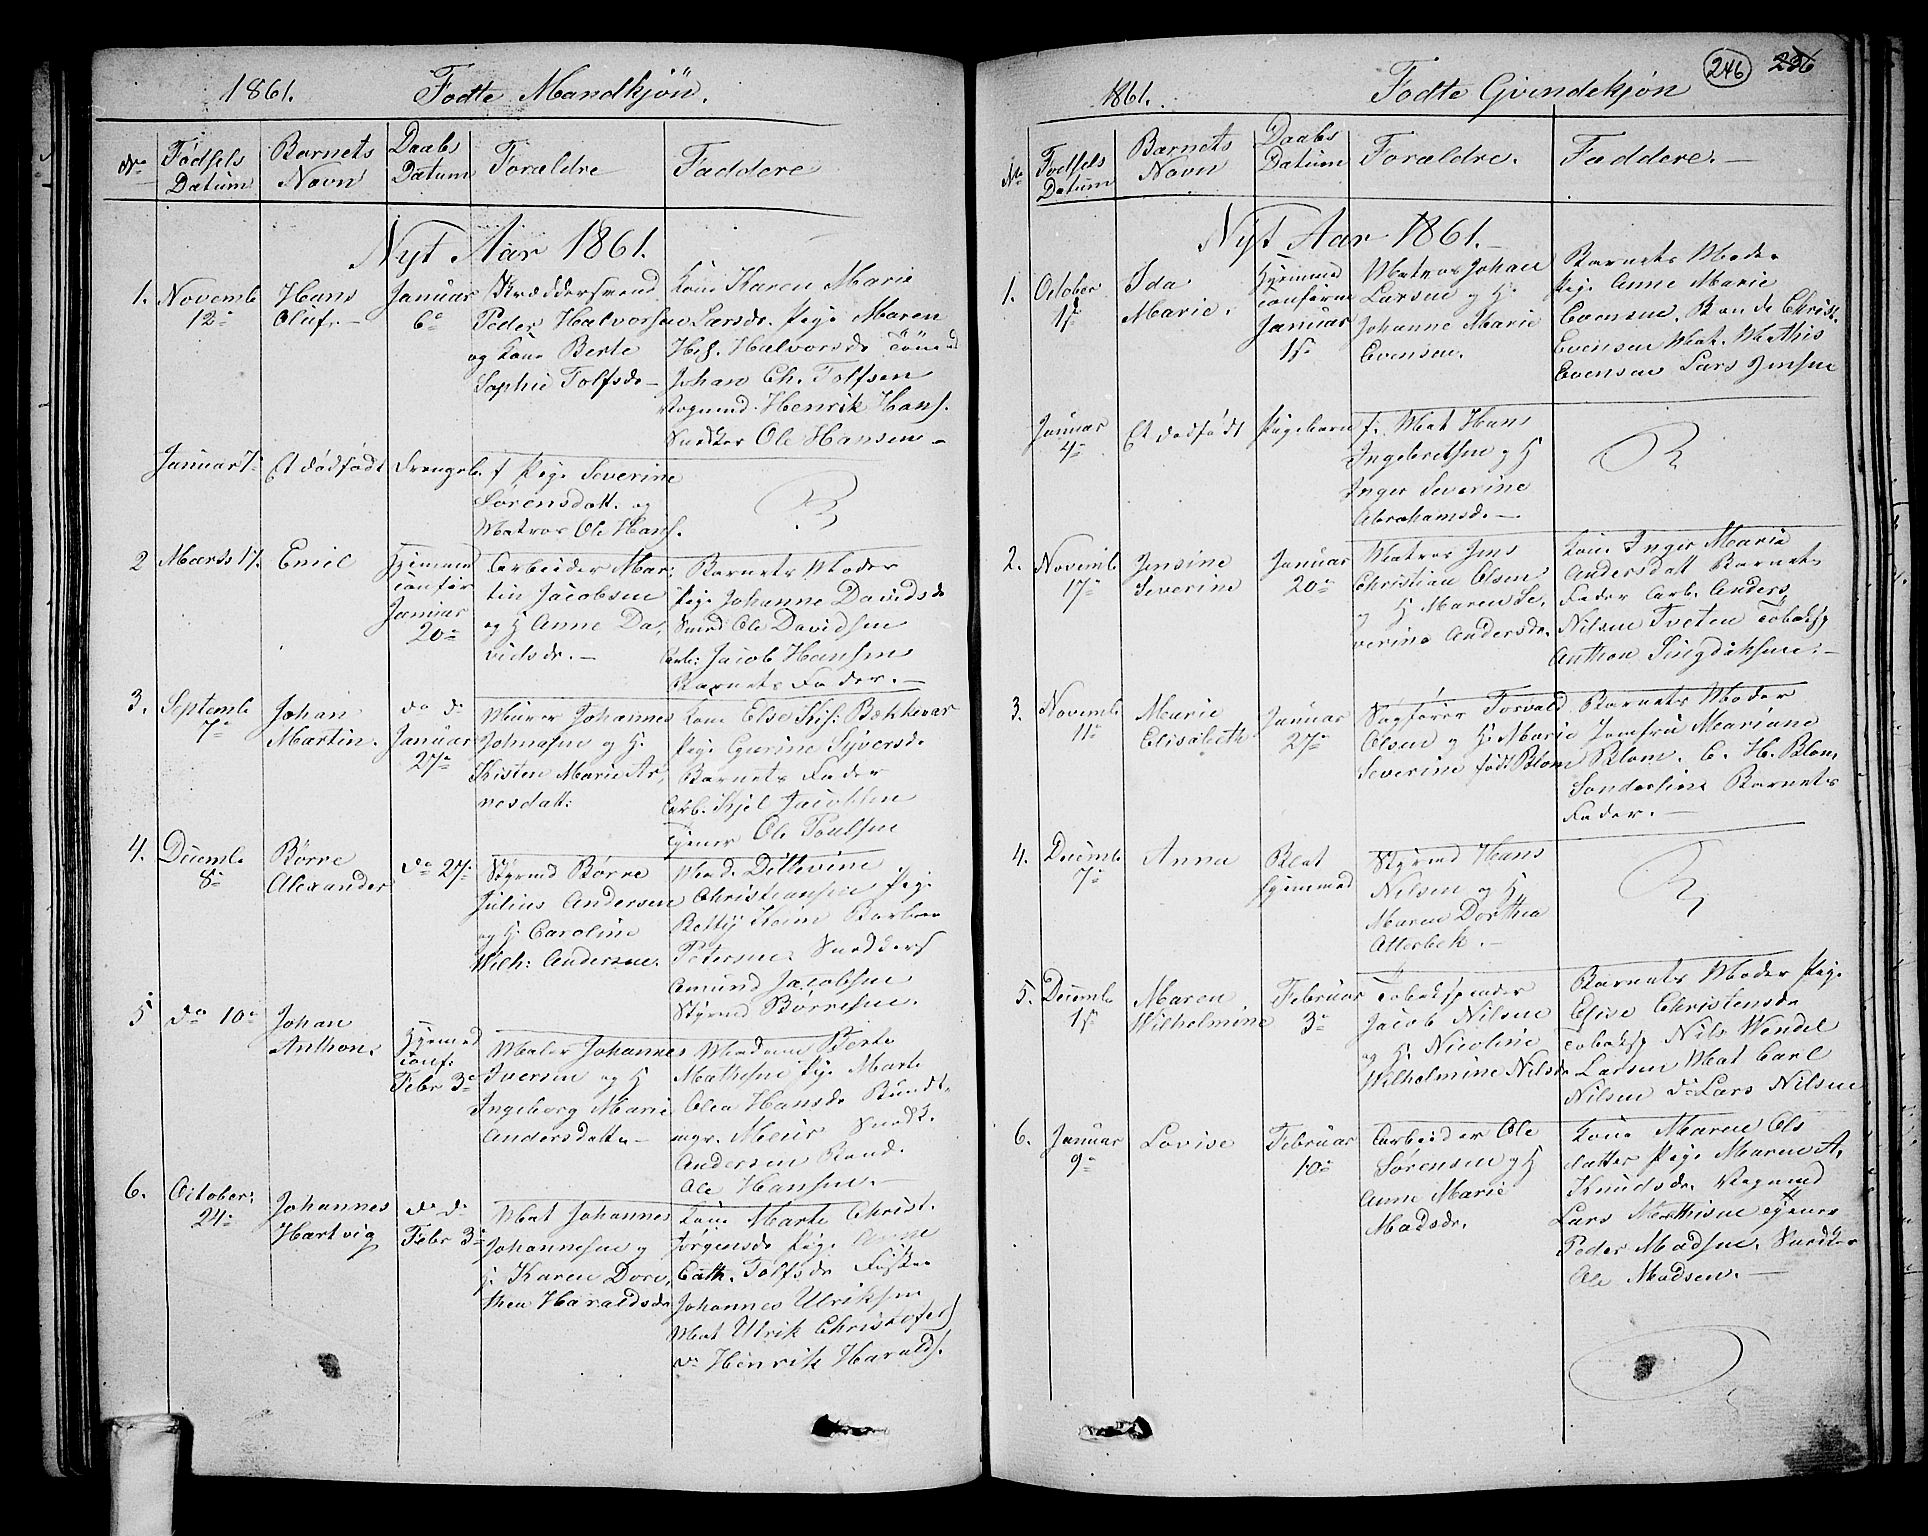 1861. Fødte Mandkjön.
No Fødsels Datum Barnets Navn Daabs Datum Forældre Faddere
Nyt Aar 1861.
1. Novemb 12te Hans Oluf. Januar 6te Skræddersvend
Peder Halvorsen
og Kone Berte
Sophie Tolfsdr
Kone Karen Marie
Larsdr. Pige Maren
Hes. Halvorsdr
Johan Ch. Tolfsen
Vognmd. Henrik Hans.
Snedker Ole Hansen
Januar Et dödfödt Drengeb. f Pige Severine
Sörensdatt. og
Matros Ole Hans.
2 Marts 17. Emil Hjemme Conf Januar 20
Arbeider Mar-
tin Jacobsen
og H Anne Da-
vidsdr.
Barnets Moder
Pige Johanne Davidsdr
Smed Ole Davidsen
Arb: Jacob Hansen
Barnets Fader.
3. Septemb 7 Johan Martin. do do Januar 27
Murer Johannes
Johnsen og H.
Kisten Marie Ar-
nesdatt:
Kone Else Bækkevar
Pige Gurine Syversdr
Barnets Fader
Arb. Kjel Jacobsen
Tjener Ole Poulsen
4. Decemb 8 Börre Alexander do 27
Styrmd Börre
Julius Andersen
og H Caroline
Wilh: Andersen.
Mad. Dittevine
Christiansen Pige
Betty Barbro
Petersen Snedkers
Amund Jacobsen
Styrmd Börresen.
5 do 10 Johan Anthon. Hjemmed Conf: Febr 3
Maler Johannes
Iversen og H
Ingeborg Marie
Andersdatt
Madam Berte
Mathisen Pige Marte
Olea Hansdr Bundt-
mgr. Meier Snedk.
Andersen Rand.
Ole Hansen.
6. October 24 Johannes Hartvig do do Febr 3
Mat Johannes
Johannesen og
H. Karen Doro-
thea Haraldsdr
Kone Marte Christ.
Jörgensdr Pige Anne
Cath. Tolfsdr Fisker
Johannes Ulriksen
Mat Ulrik Christofers
do Henrik Haralds.
246 236
1861. Fødte Qvindekjön
No Fødsels Datum Barnets Navn Daabs Datum Forældre. Faddere.
Nyt Aar 1861.
1. October Ida Marie. Hjemmed Confirm Januar
Matros Johan
Larsen og H.
Johanne Marie
Evensen.
Barnets Moder
Pige Anne Marie
Evensen. Christ.
Evensen Mat. Mathis
Evensen Lars Jensen
Januar 4 Et dödfödt Pigebarn f. Mat Hans
Ingebretsen og H
Inger Severine
Abrahamsdr.
2. Novemb 17 Jensine Severine Januar 20
Matros Jens
Christian Olsen
og H Maren Se-
verine Andersdr.
Kone Inger Marie
Andersdatt Barnets
Fader Arb. Anders
Nilsen Tveten Tobaksp
Anthon
3. Novemb 11 Marie Elisabeth Januar 27
Sagförer Torvald
Olsen og H. Marie
Severine födt Blom
Barnets Moder
Jomfru Mariane
Blom. C. H. Blom
Barnets
Fader.
4. Decemb 7 Anna Blot hjemmed
Styrmd Hans
Nilsen og H
Maren Dorthea
Atterbek.
5. Decemb Maren Wilhelmine Februar 3
Tobakspinder
Jacob Nilsen
og H. Nicoline
Wilhelmine Nilsdr
Barnets Moder Pige
Elise Christensdr
Tobaksp Nils Wendel
Larsen Mat Carl
Nilsen do Lars Nilsen
6. Januar 9 Lovise Februar 10
Arbeider Ole
Sörensen og H
Anne Marie
Madsdr.
Kone Maren Ols
datter Pige Maren A.
Knudsdr. Vognmd
Lars Mathisen Tjener
Peder Madsen. Snedker
Ole Madsen.